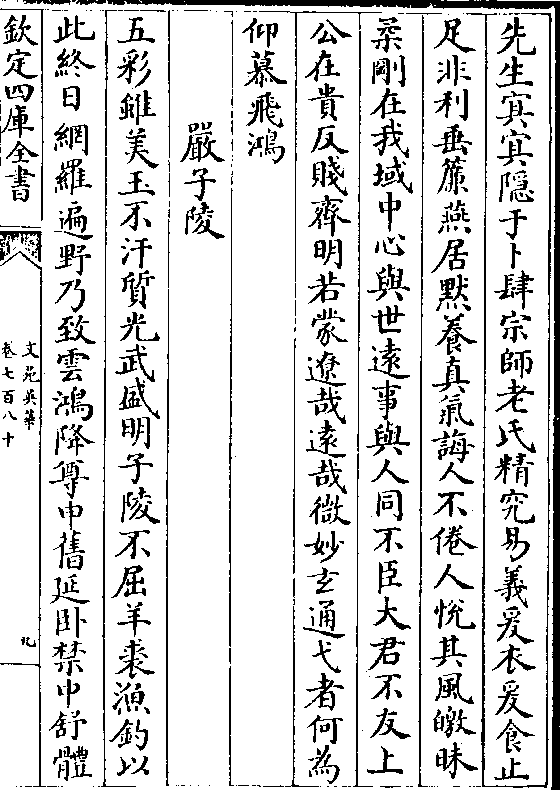 先生冥冥隠于卜肆宗師老氏精究易義爰衣爰食止
足非利垂簾燕居黙養真氣誨人不倦人悅其風皦昧
柔剛在我域中心與世遠事與人同不臣大君不友上
公在貴反賤齊明若蒙遼哉遠哉微妙玄通弋者何為
仰慕飛鴻
嚴子陵
五彩錐美玉不汗質光武盛明子陵不屈羊裘漁釣以
此終日網羅遍野乃致雲鴻降尊申舊延卧禁中舒體
欽定四庫全書
文苑英華
卷七百八十
九